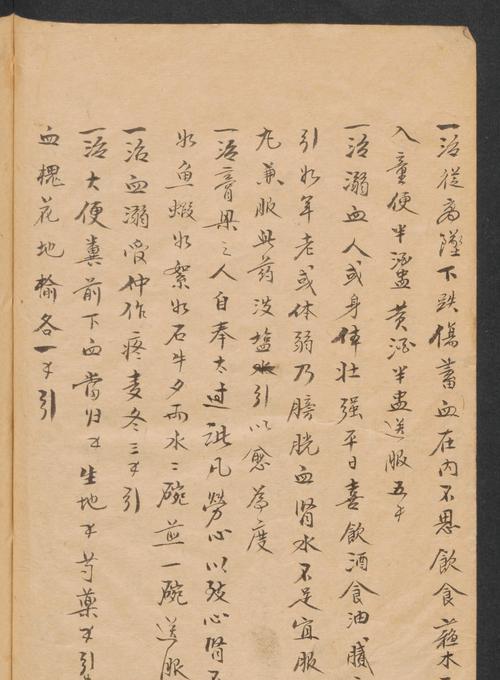 一治從高墜下跌傷蓄血在内不思飲食蘓木
入童便半酒盃黄酒半盅送服五
一治溺血人或身体壮强平日喜飲酒食油膩
引如年老或体弱乃膀胱血腎水不足宜服
丸兼服此药淡塩引以愈為度
一治膏粱之人自奉太过誑凡勞心以致心腎
如魚蝦如絮如石牛夕兩水二碗並一碗送服
一治血溺作疼麦冬三引
一治大便糞前下血當归生地芍藥引
血槐花地榆各一引